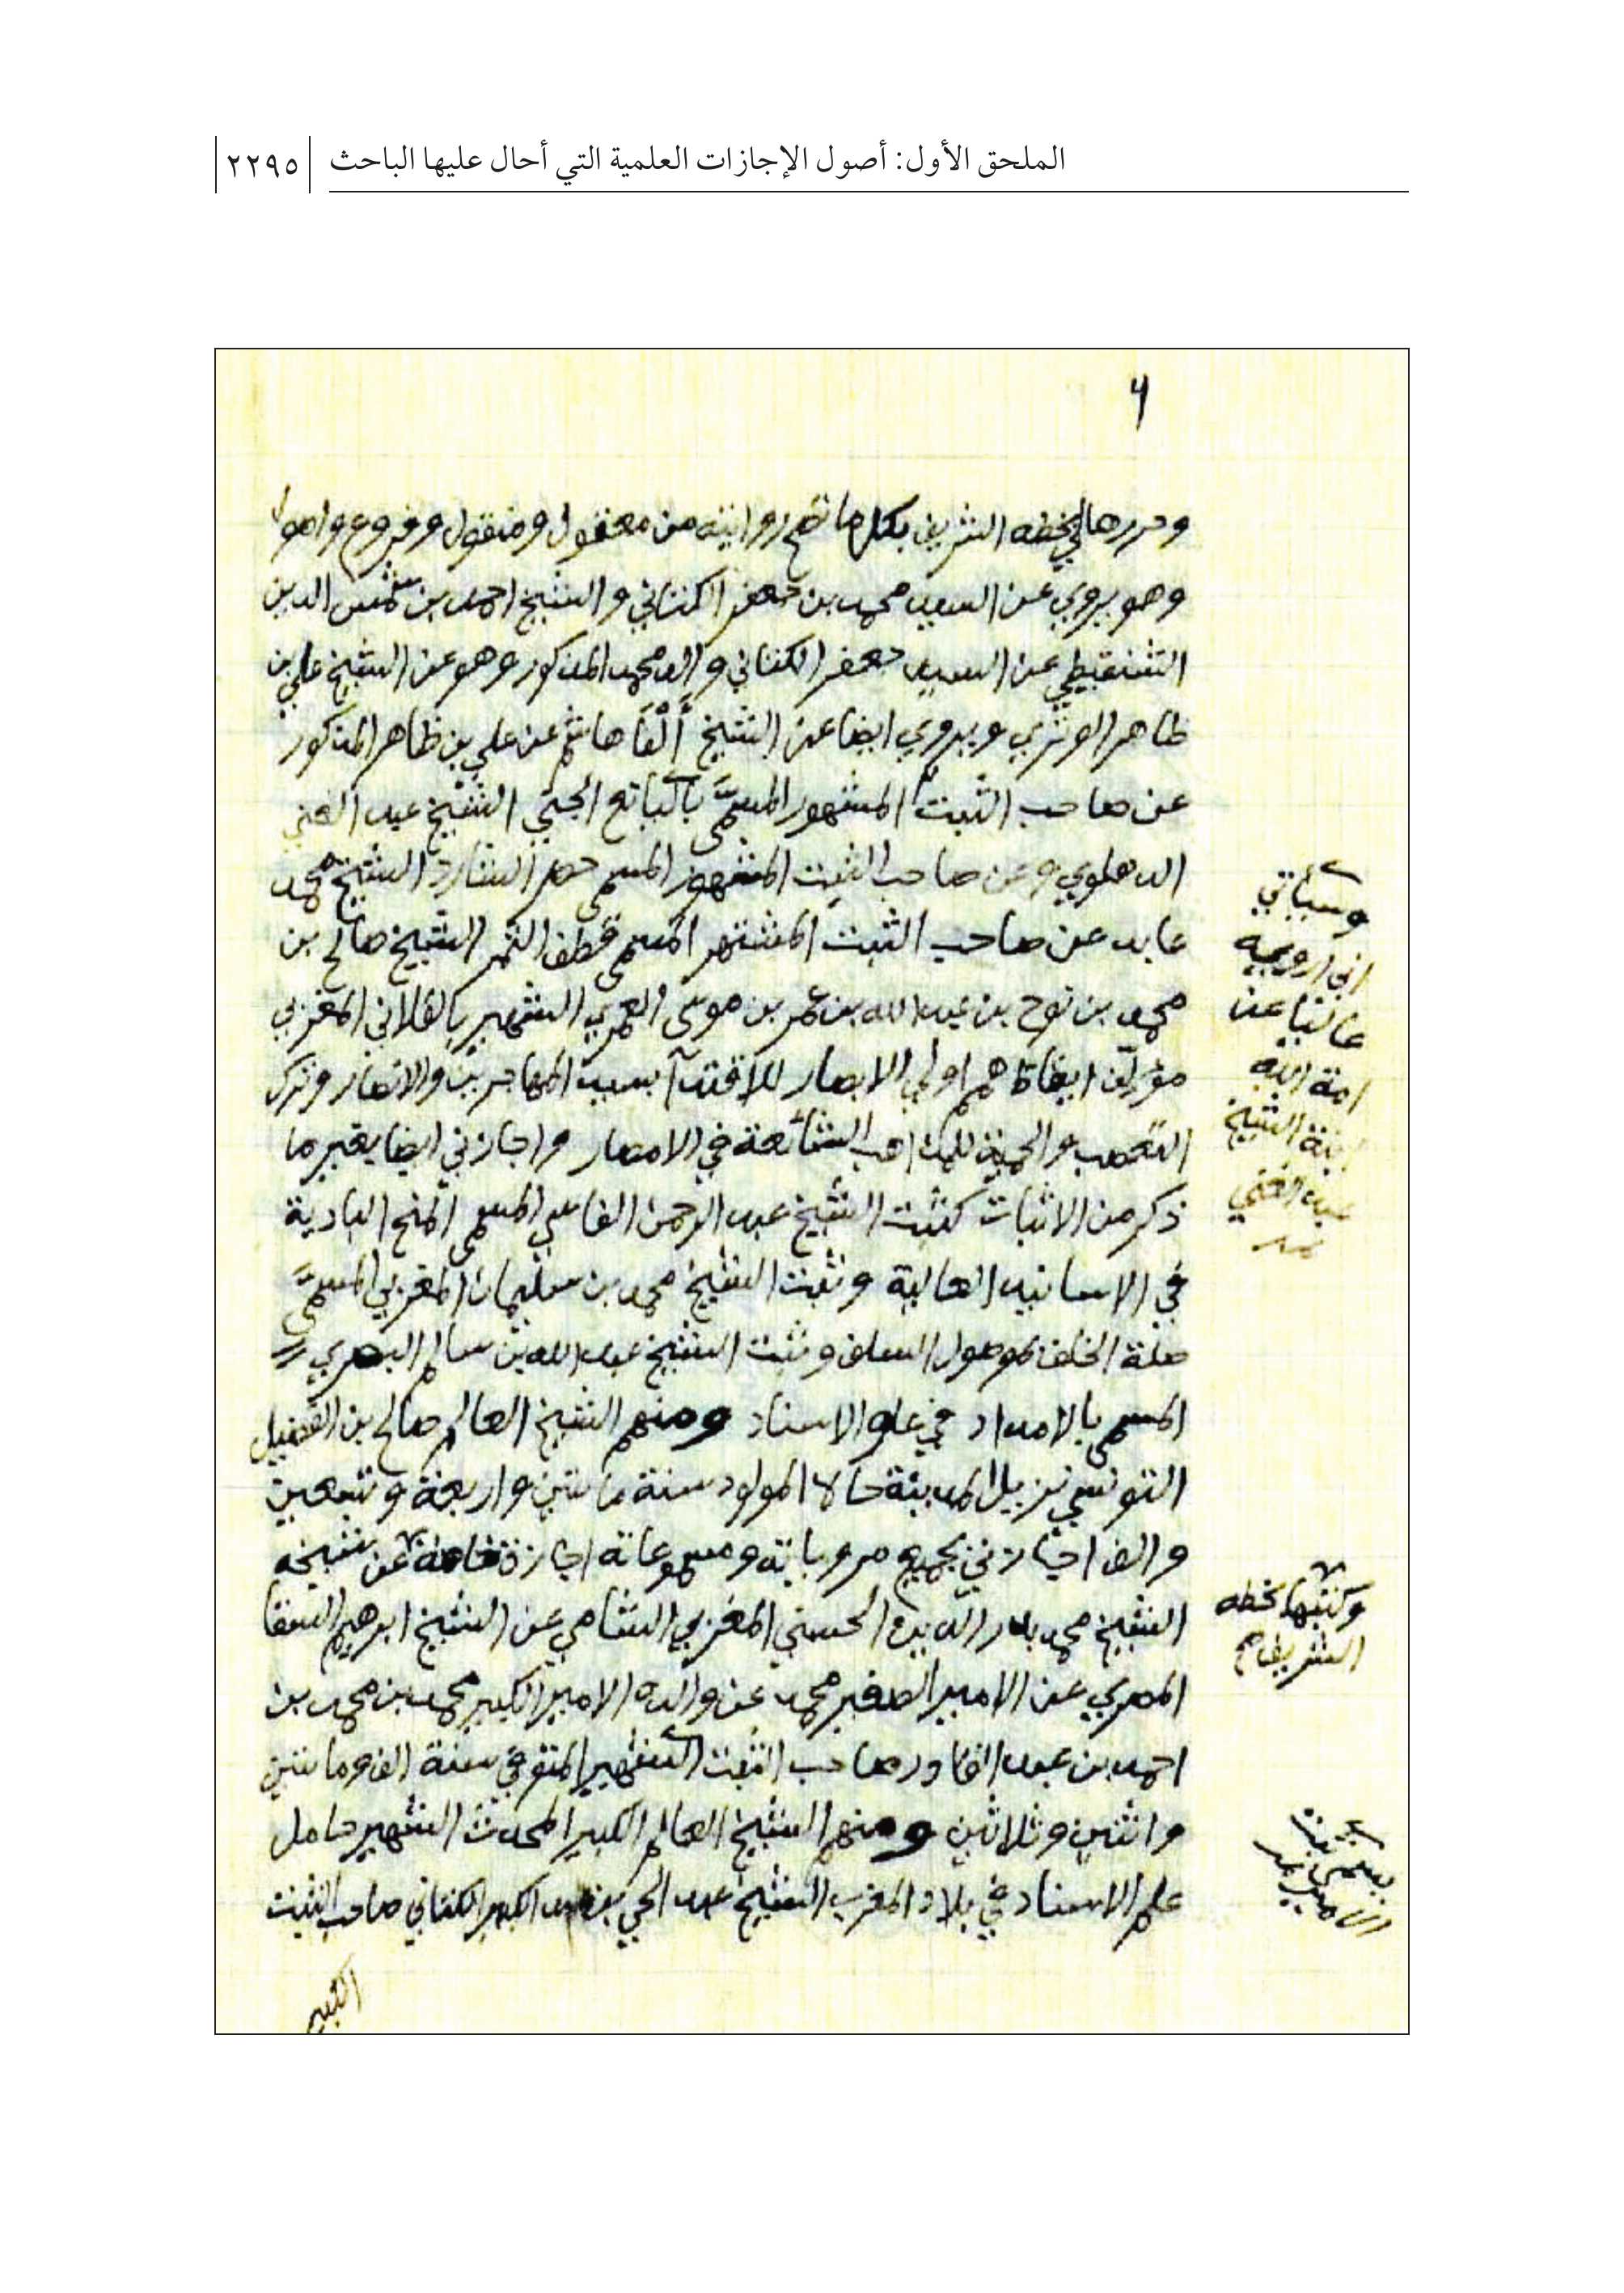 الملحق الأول: أصول الإجازات العلمية التي أحال عليها الباحث
٢٢٩٥
٦
وحررها لي بخطه الشريف بكل ما تصح روايته من معقول ومنقول وفروع واصول
وهو يروي عن السيد محمد بن جعفر الكتاني والشيخ احمد بن شمس الدين
الشنقيطي عن السيد جعفر الكتاني والد محمد المذكور وهو عن الشيخ علي بن
ظاهر الوتري ويروي ايضا عن الشيخ ألفا هاشم عن علي بن ظاهر المذكور
عن صاحب الثبت المشهور المسمَّى باليانع الجني الشيخ عبد الغني
الدهلوي وعن صاحب الثبت المشهور المسمى حصر الشارد الشيخ محمد
عابد عن صاحب الثبت المشتهر المسمى قطف الثمر الشيخ صالح بن
محمد بن نوح بن عبد الله بن عمر بن موسى العمري الشهير بالفلاني المغربي
مؤلف ايقاظ همم اولي الابصار للاقتدآ بسيد المهاجرين والانصار وترك
التعصب والحمية للمذاهب الشائعة في الامصار واجازني ايضا بغير ما
ذكر من الاثبات كثبت الشيخ عبد الرحمن الفاسي المسمى المنح البادية
في الاسانيد العالية وثبت الشيخ محمد بن سليمان المغربي المسمَّى
صلة الخلف بموصول السلف وثبت الشيخ عبد الله بن سالم البصري
المسمى بالامداد في علو الاسناد ومنهم الشيخ العالم صالح بن الفضيل
التونسي نزيل المدينة حالا المولود سنة مائتين واربعة وتسعين
والف اجازني بجميع مروياته ومسموعاته اجازة عن شيخه
الشيخ محمد بدر الدين الحسني المغربي الشامي عن الشيخ ابرهيم السقا
المصري عن الامير الصغير محمد عن والده الامير الكبير محمد بن محمد بن
احمد بن عبد القادر صاحب الثبت الشهير المتوفي سنة الف ومائتين
واثنتين وثلاثين ومنهم الشيخ العالم الكبير المحدث الشهير حامل
علم الاسناد في بلاد المغرب الشيخ عبد الحي بن عبد الكبير الكتاني صاحب الثبت
الكبير
وسيأتي
اني ارويه
عاليا عن
امة الله
ابنة الشيخ
عبد الغني
وكتبها بخطه
الشريف صح
الامير